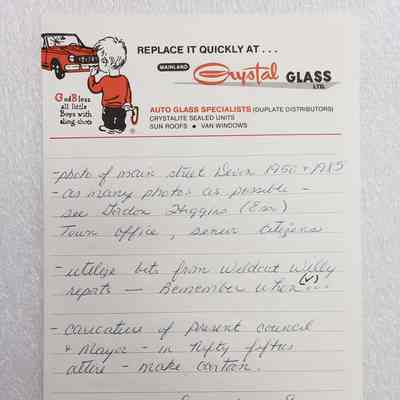 REPLACE IT QUICKLY AT . . .
MAINLAND Crystal GLASS LTD.
GodBless
all little
Boys with
sling-shots
AUTO GLASS SPECIALISTS (DUPLATE DISTRIBUTORS)
CRYSTALITE SEALED UNITS
SUN ROOFS • VAN WINDOWS
- photo of main street Devon 1950 + 1985
- as many photos as possible -
see Gordon Higgins (Em)
Town office, senior citizens
- utilize bits from Wildcat Willy
reports — Remember when (v)...
- caricature of present council
+ Mayor - in Nifty fifties
attire - make cartoon.